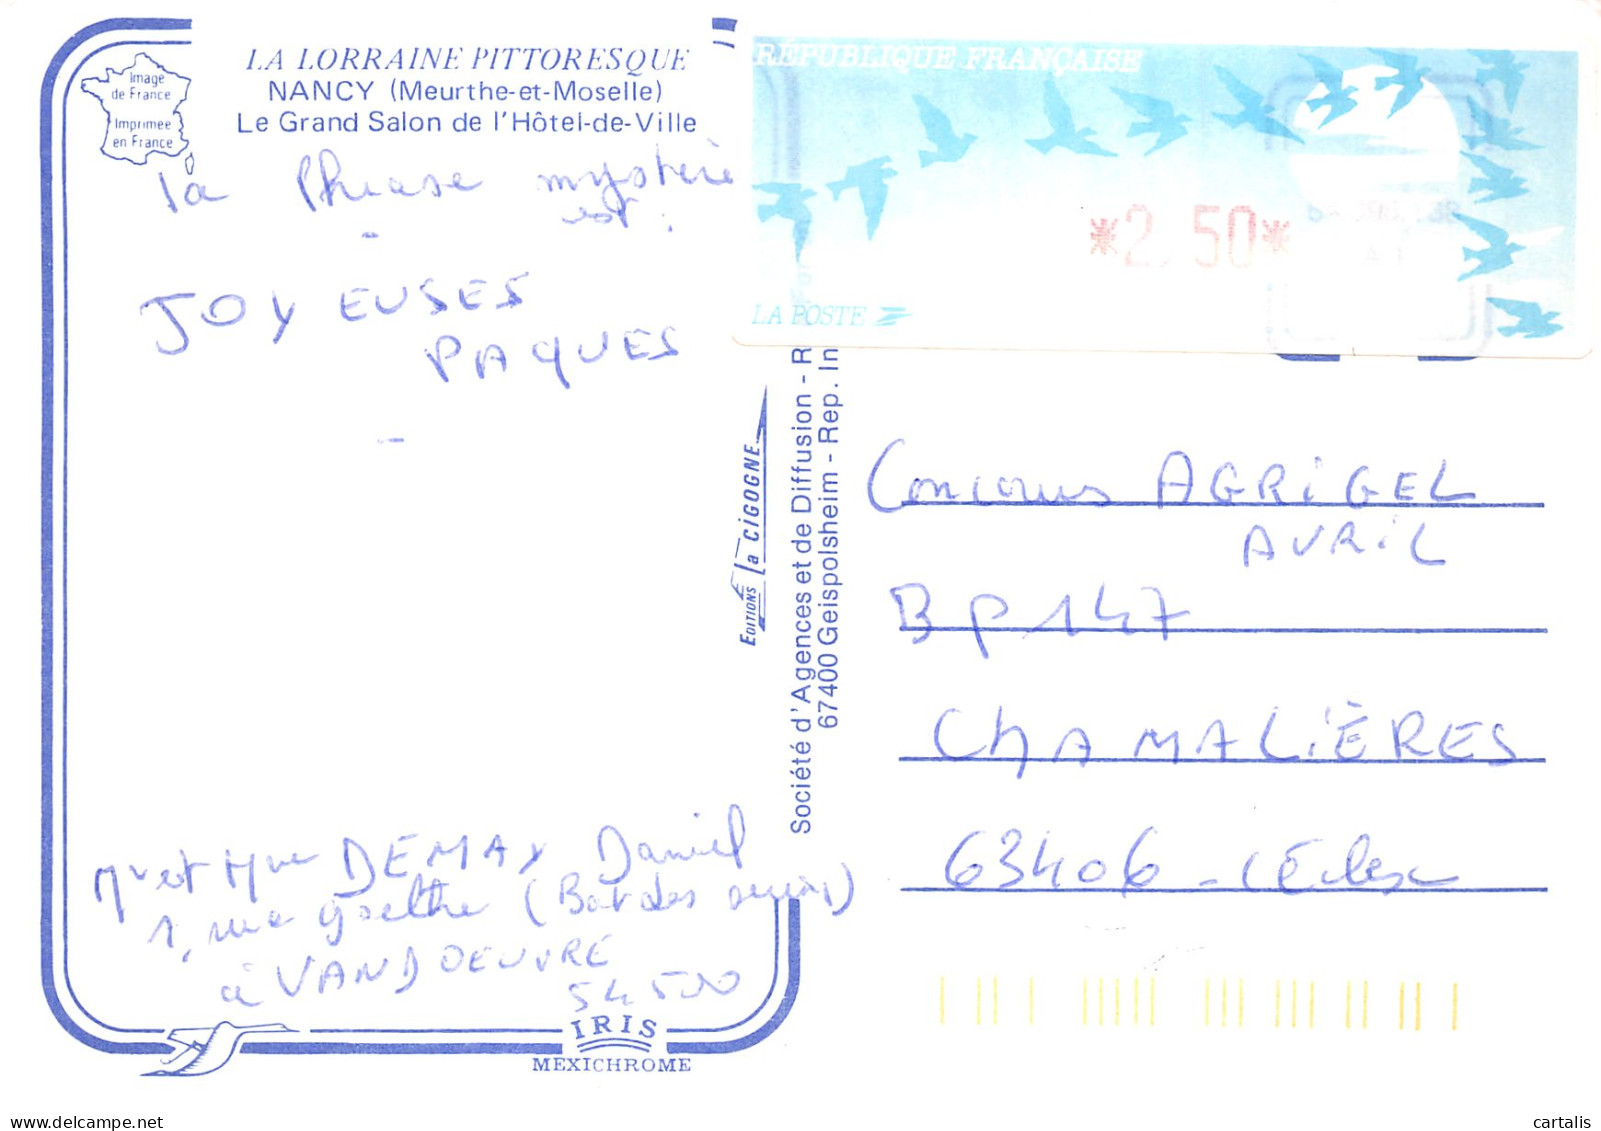 LA LORRAINE PITTORESQUE
NANCY (Meurthe-et-Moselle)
Le Grand Salon de l'Hôtel-de-Ville
Image
de France
Imprimée
en France
la Phrase mystère
est :
JOYEUSES
PAQUES
Mr et Mme DEMAY Daniel
1, rue Goethe (Bat des
à VANDOEUVRE
54500
IRIS
MEXICHROME
EDITIONS La CIGOGNE
Société d'Agences et de Diffusion - R
67400 Geispolsheim - Rep. In
RÉPUBLIQUE FRANÇAISE
*2,50*
LA POSTE
Concours AGRIGEL
AVRIL
BP 147
CHAMALIÈRES
63406 - CEdex
cartalis.com